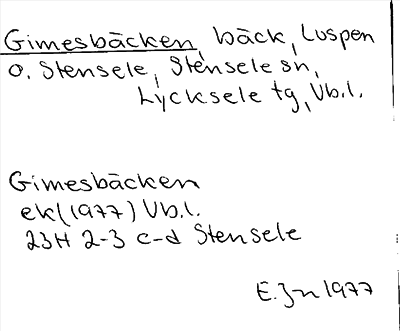 Gimesbäcken, bäck, Luspen
o. Stensele, Stensele sn,
Lycksele tg, Vb.l.
Gimesbäcken
ek(1977) Vb.l.
23H 2-3 c-d Stensele
E. Jn 1977